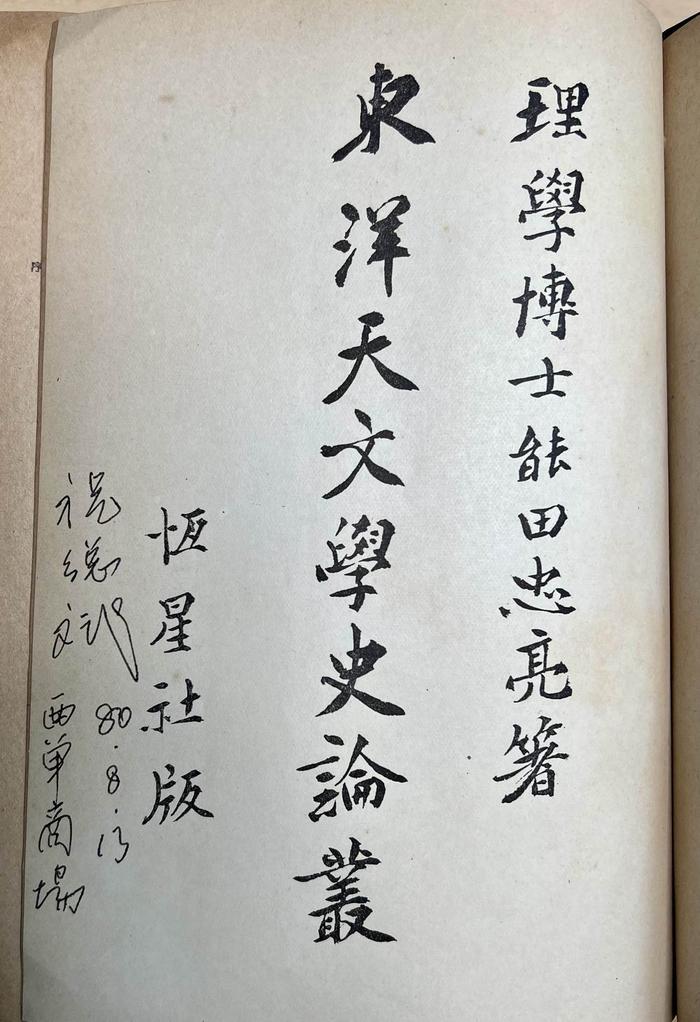 理學博士能田忠亮著
東洋天文學史論叢
恆星社版
祝総斌
80.8.13
西单商场
序